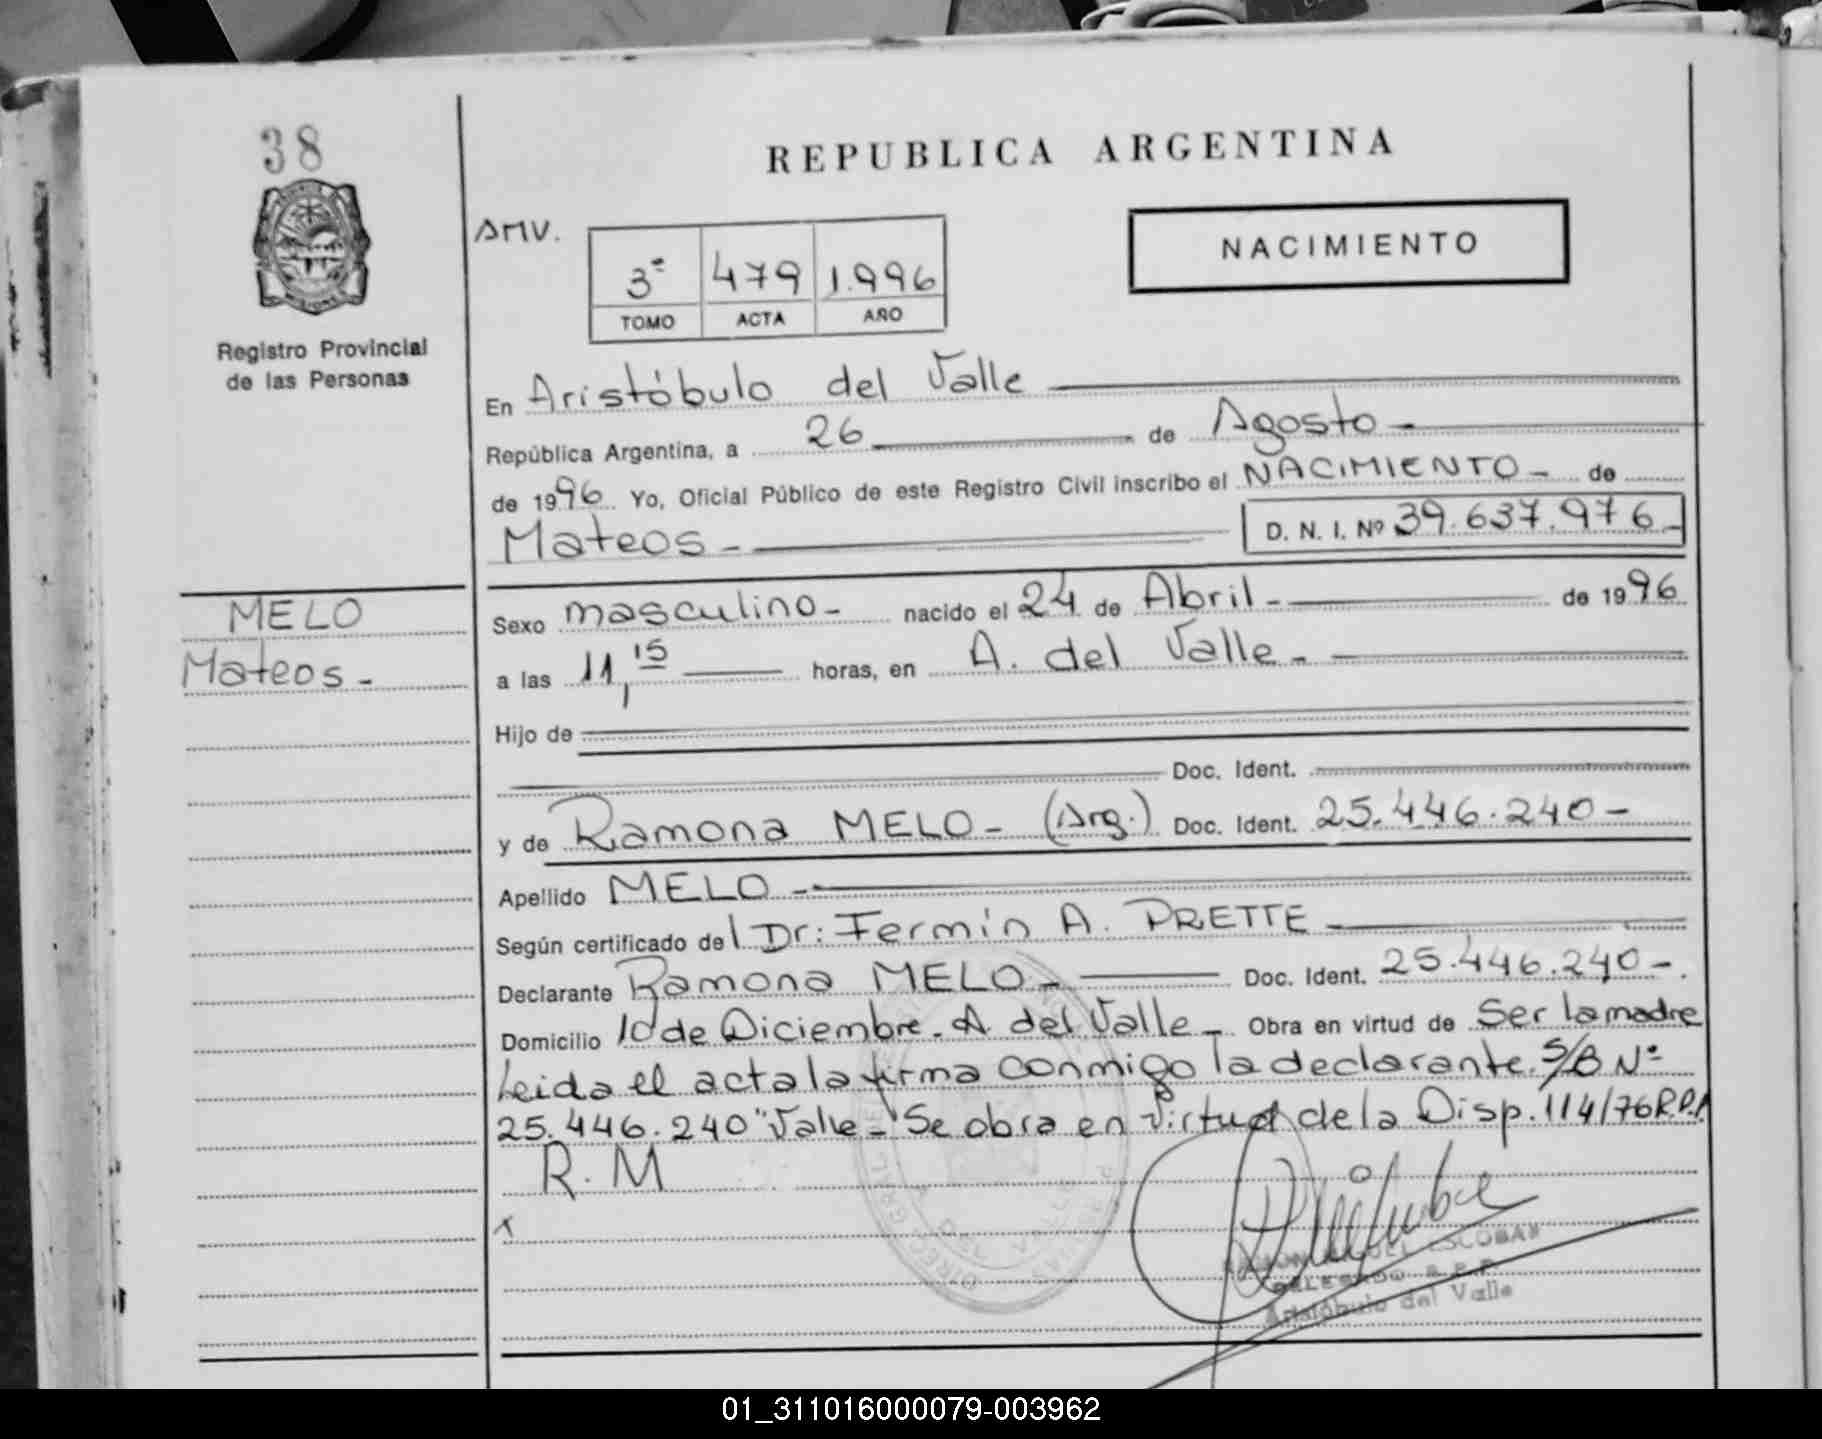 38
REPUBLICA ARGENTINA
AMV.
3º 479 1.996
TOMO ACTA AÑO
NACIMIENTO
MISIONES
Registro Provincial
de las Personas
En Aristóbulo del Valle
República Argentina, a 26 de Agosto
de 1996 Yo, Oficial Público de este Registro Civil inscribo el NACIMIENTO de
Mateos D. N. I. Nº 39.637.976
MELO
Mateos
Sexo masculino nacido el 24 de Abril de 1996
a las 11,15 horas, en A. del Valle
Hijo de
Doc. Ident.
y de Ramona MELO (Arg.) Doc. Ident. 25.446.240
Apellido MELO
Según certificado del Dr: Fermín A. PRETTE
Declarante Ramona MELO Doc. Ident. 25.446.240
Domicilio 10 de Diciembre. A del Valle Obra en virtud de Ser la madre
Leida el acta la firma conmigo la declarante. S/B Nº
25.446.240 "Valle" Se obra en virtud de la Disp. 114/76 R.P.P.
R. M
x
RAMON MIGUEL ESCOBAR
DELEGADO R.P.P.
Aristóbulo del Valle
01_311016000079-003962